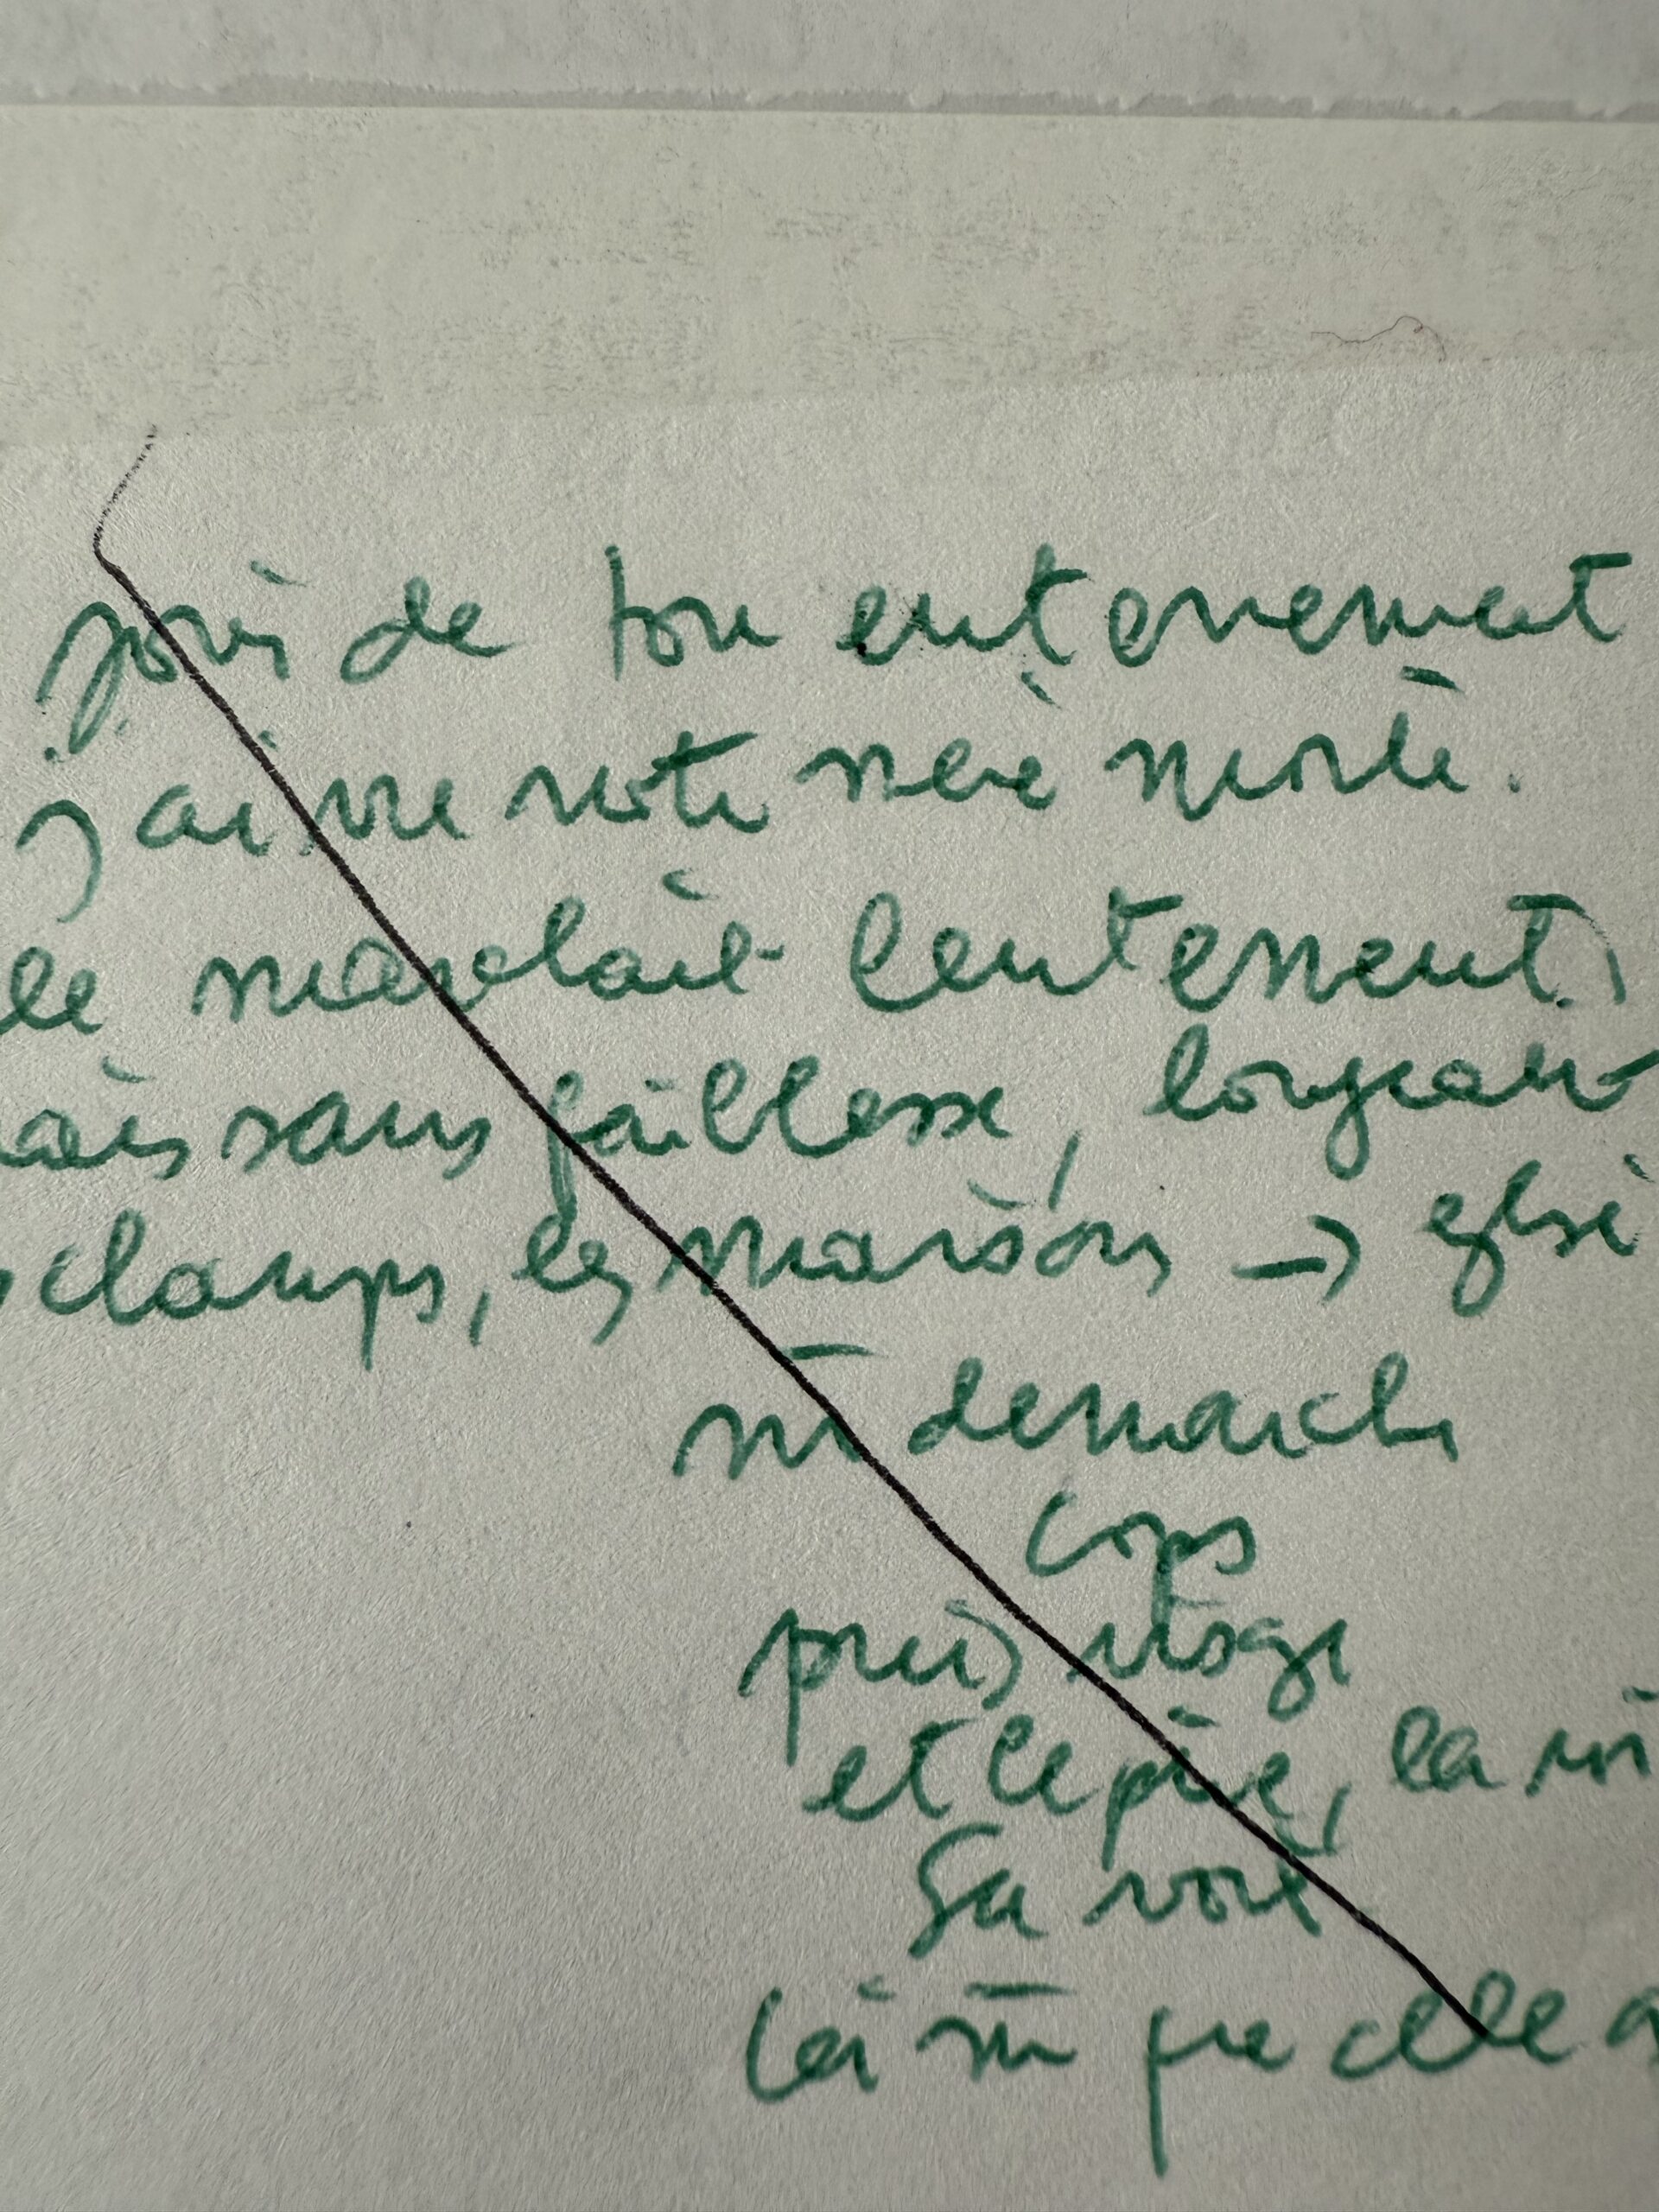 jours de ton enterrement
j'ai vu notre mère morte.
le marchait lentement,
ais sans faiblesse, longeant
champs, les maisons → églsi
m̄ demarche
corps
puis visage
et le père, la m
Sa voix
la m̄ que celle